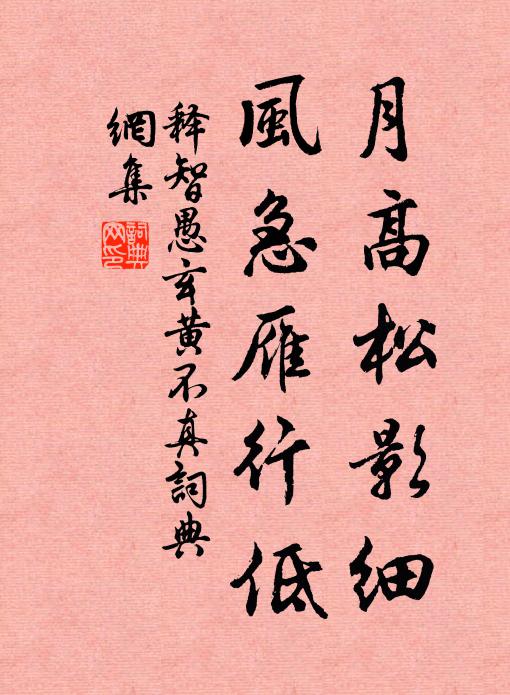 月高松影細
風急雁行低
释智愚玄黄不真詞典
網集
詞典
网印